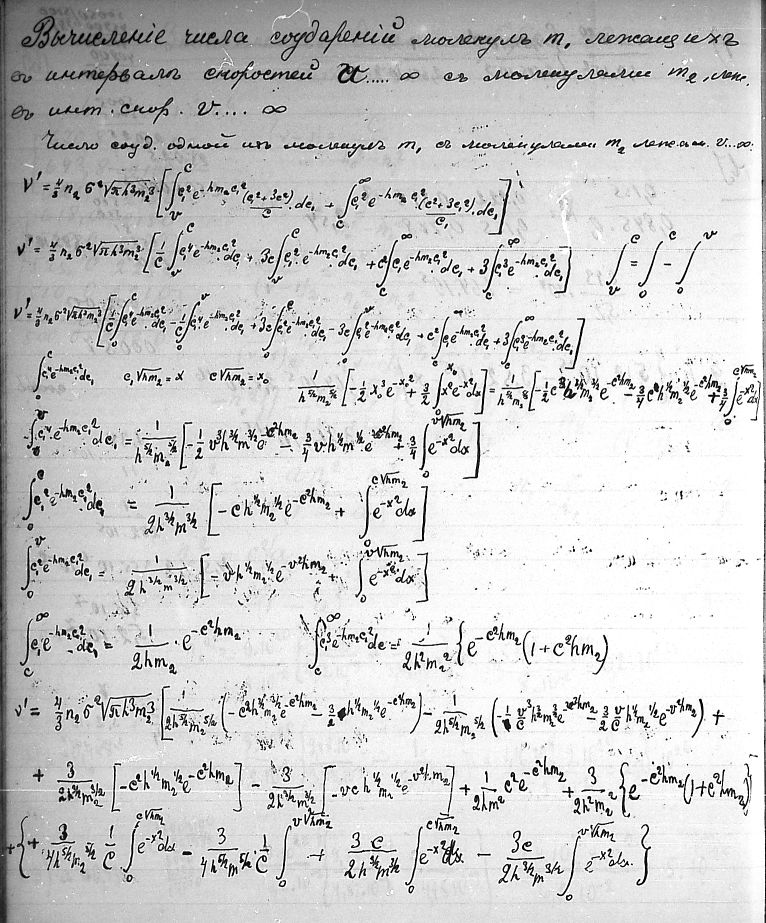 Вычисленіе числа соудареній молекулъ m₁ лежащихъ
въ интервалѣ скоростей u.... ∞ съ молекулами m₂, леж.
въ инт. скор. v.... ∞
Число соуд. одной изъ молекулъ m₁ съ молекулами m₂ лежащ. v...∞
ν' = 4/3 n₂ σ² √(πh³m₂³) [∫_v^c c₁² e^(-hm₂c₁²) (c₁²+3c²)/c · dc₁ + ∫_c^∞ c₁² e^(-hm₂c₁²) (c²+3c₁²)/c₁ · dc₁]
ν' = 4/3 n₂ σ² √(πh³m₂³) [1/c ∫_v^c c₁⁴ e^(-hm₂c₁²) dc₁ + 3c ∫_v^c c₁² e^(-hm₂c₁²) dc₁ + c² ∫_c^∞ c₁ e^(-hm₂c₁²) dc₁ + 3 ∫_c^∞ c₁³ e^(-hm₂c₁²) dc₁] ∫_v^c = ∫_0^c − ∫_0^v
ν' = 4/3 n₂ σ² √(πh³m₂³) [1/c ∫_0^c c₁⁴ e^(-hm₂c₁²) dc₁ − 1/c ∫_0^v c₁⁴ e^(-hm₂c₁²) dc₁ + 3c ∫_0^c c₁² e^(-hm₂c₁²) dc₁ − 3c ∫_0^v c₁² e^(-hm₂c₁²) dc₁ + c² ∫_c^∞ c₁ e^(-hm₂c₁²) dc₁ + 3 ∫_c^∞ c₁³ e^(-hm₂c₁²) dc₁]
∫_0^c c₁⁴ e^(-hm₂c₁²) dc₁ c₁√(hm₂) = x c√(hm₂) = x₀ 1/(h^(5/2) m₂^(5/2)) [−1/2 x₀³ e^(-x₀²) + 3/2 ∫_0^(x₀) x² e^(-x²) dx] = 1/(h^(5/2) m₂^(5/2)) [−1/2 c³ h^(3/2) m₂^(3/2) e^(-c²hm₂) − 3/4 c h^(1/2) m₂^(1/2) e^(-c²hm₂) + 3/4 ∫_0^(c√(hm₂)) e^(-x²) dx]
∫_0^v c₁⁴ e^(-hm₂c₁²) dc₁ = 1/(h^(5/2) m₂^(5/2)) [−1/2 v³ h^(3/2) m^(3/2) e^(-v²hm₂) − 3/4 v h^(1/2) m^(1/2) e^(-v²hm₂) + 3/4 ∫_0^(v√(hm₂)) e^(-x²) dx]
∫_0^c c₁² e^(-hm₂c₁²) dc₁ = 1/(2h^(3/2) m^(3/2)) [−c h^(1/2) m₂^(1/2) e^(-c²hm₂) + ∫_0^(c√(hm₂)) e^(-x²) dx]
∫_0^v c₁² e^(-hm₂c₁²) dc₁ = 1/(2h^(3/2) m^(3/2)) [−v h^(1/2) m₂^(1/2) e^(-v²hm₂) + ∫_0^(v√(hm₂)) e^(-x²) dx]
∫_c^∞ c₁ e^(-hm₂c₁²) dc₁ = 1/(2hm₂) · e^(-c²hm₂) ∫_c^∞ c₁³ e^(-hm₂c₁²) dc = 1/(2h²m₂²) {e^(-c²hm₂) (1+c²hm₂)
ν' = 4/3 n₂ σ² √(πh³m₂³) [1/(2h^(5/2) m₂^(5/2)) (−c² h^(3/2) m₂^(3/2) e^(-c²hm₂) − 3/2 h^(1/2) m₂^(1/2) e^(-c²hm₂)) − 1/(2h^(5/2) m₂^(5/2)) (−1/c v³ h^(3/2) m₂^(3/2) e^(-v²hm₂) − 3/2 v/c h^(1/2) m₂^(1/2) e^(-v²hm₂)) +
+ 3/(2h^(3/2) m₂^(3/2)) [−c² h^(1/2) m₂^(1/2) e^(-c²hm₂)] − 3/(2h^(3/2) m₂^(3/2)) [−vc h^(1/2) m₂^(1/2) e^(-v²hm₂)] + 1/(2hm₂) c² e^(-c²hm₂) + 3/(2h²m₂²) {e^(-c²hm₂) (1+c²hm₂)}]
+ {+ 3/(4h^(5/2) m₂^(5/2)) 1/c ∫_0^(c√(hm₂)) e^(-x²) dx − 3/(4h^(5/2) m^(5/2)) · 1/c ∫_0^(v√(hm₂)) + 3c/(2h^(3/2) m^(3/2)) ∫_0^(c√(hm₂)) e^(-x²) dx − 3c/(2h^(3/2) m^(3/2)) ∫_0^(v√(hm₂)) e^(-x²) dx}